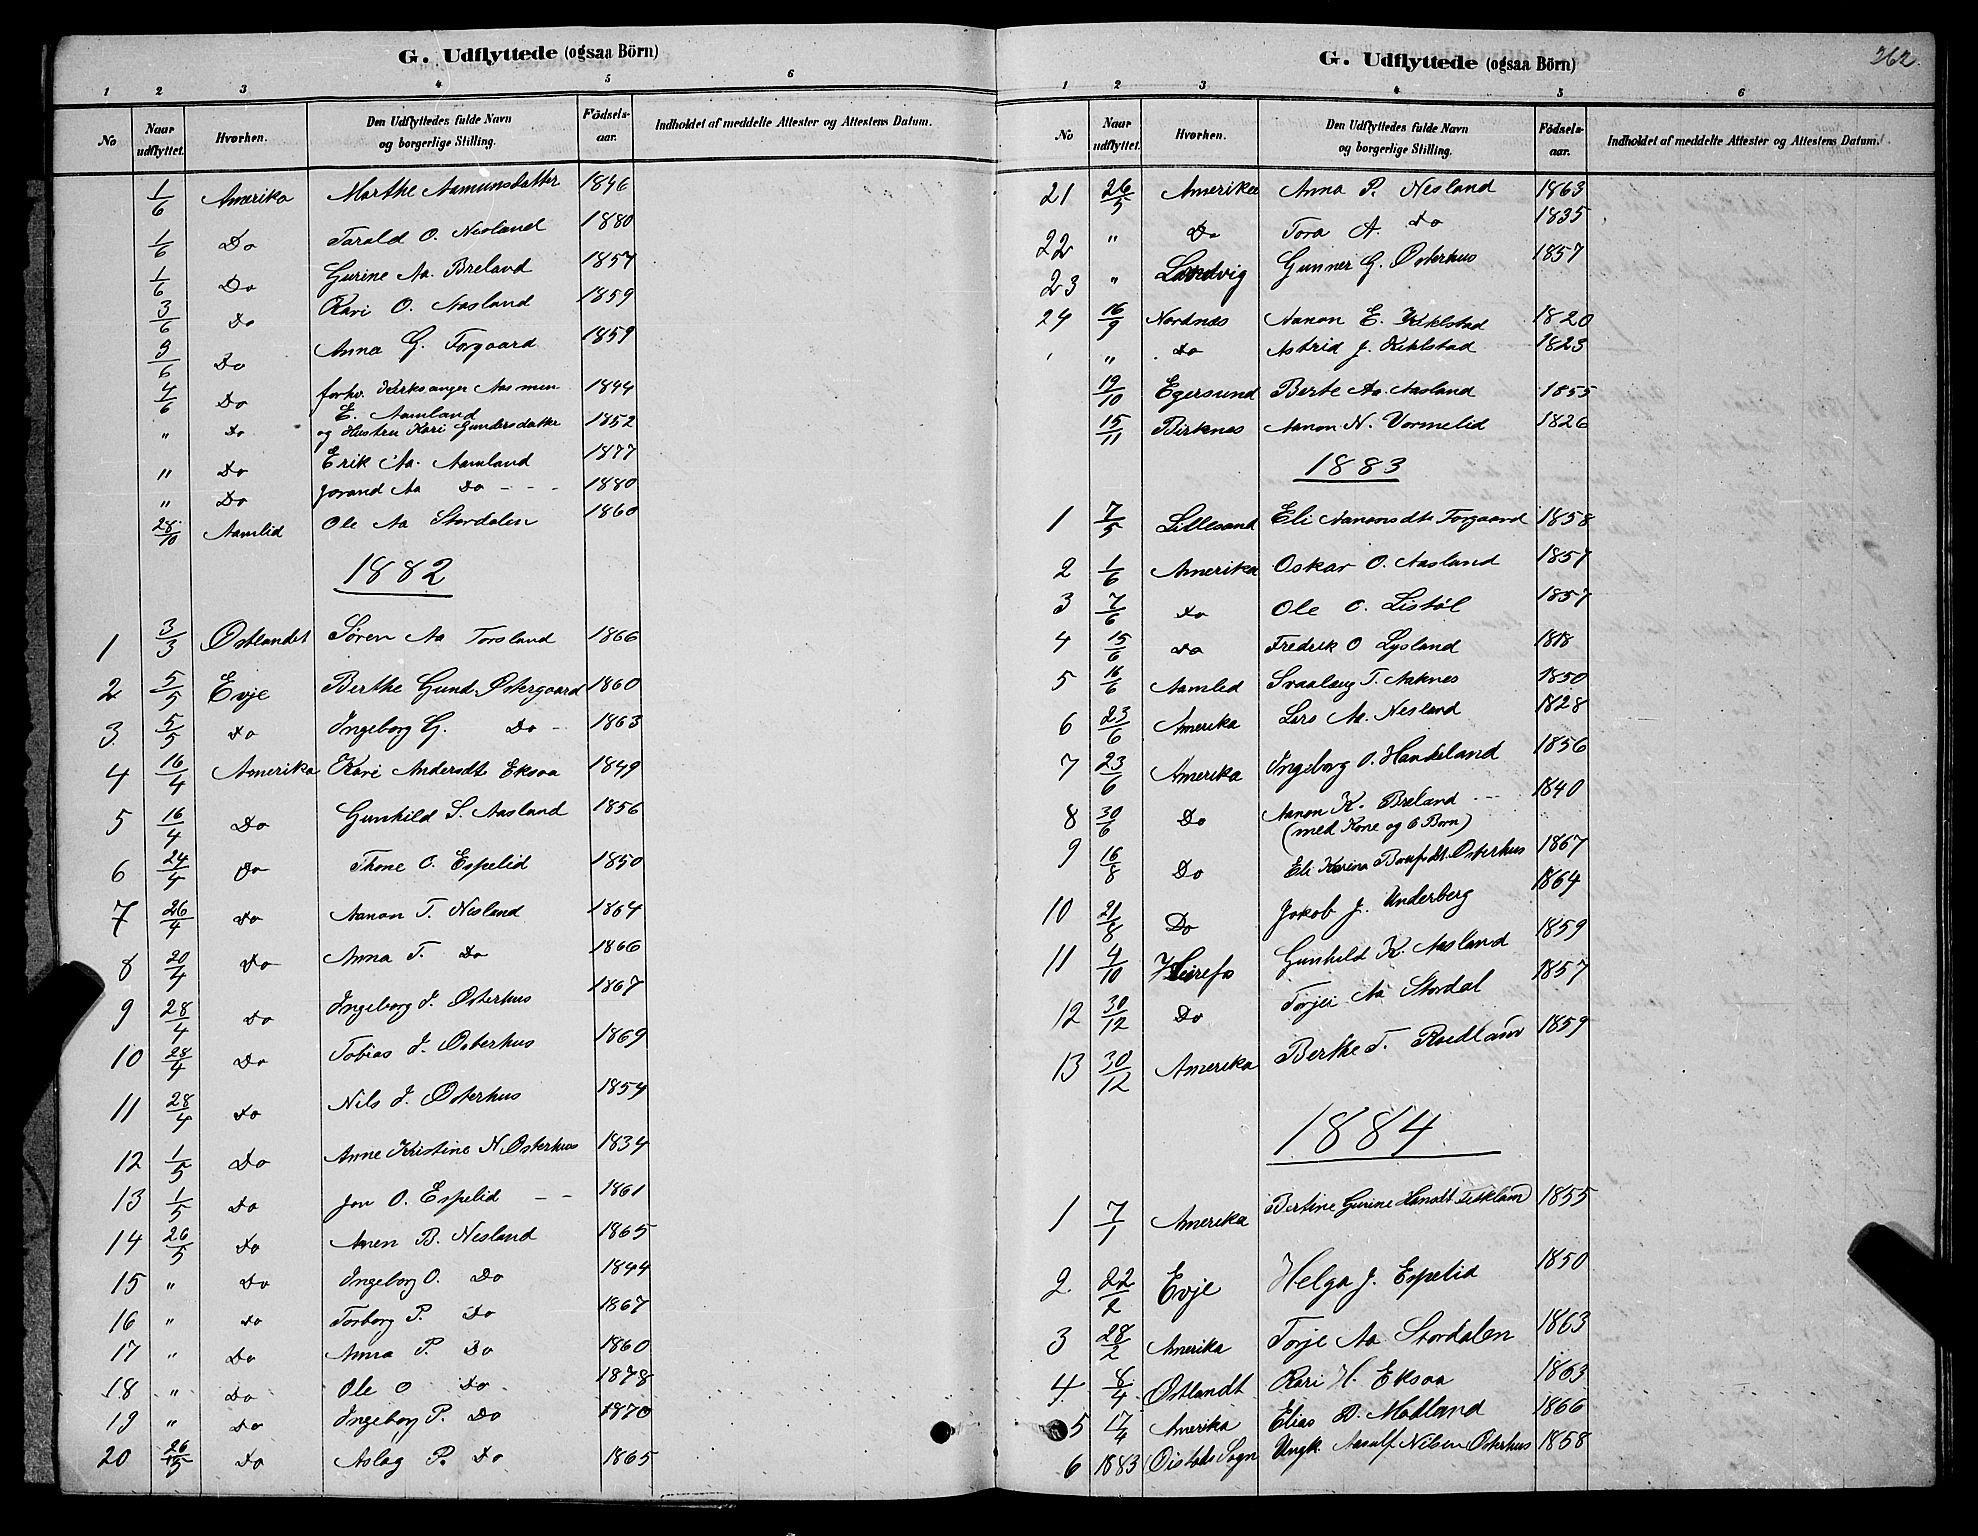 G. Udflyttede (ogsaa Börn)
1 2 3 4 5 6
No Naar udflyttet. Hvorhen. Den Udflyttedes fulde Navn og borgerlige Stilling. Födsels-aar. Indholdet af meddelte Attester og Attestens Datum.
1/6 Amerika Marthe Aamunsdatter 1846
1/6 Do Tarald O. Nesland 1880
1/6 Do Gurine Aa. Breland 1857
3/6 Do Kari O. Aasland 1859
3/6 Do Anna G. Torgaard 1859
4/6 Do forhv. Kirksanger Aasmun 1844
E. Aamland
" Do og Hustru Kari Gundersdatter 1852
" Do Erik Aa. Aamland 1877
" Do Jorand Aa Do - - - 1880
28/10 Aamlid Ole Aa Stordalen 1860
1882
1 3/3 Østlandet Søren Aa Torsland 1866
2 5/5 Evje Berthe Gund. Østergaard 1860
3. 5/5 Do Ingeborg G. Do - 1863
4 16/4 Amerika Kari Andersdt Eksaa 1849
5 16/4 Do Gunhild S. Aasland 1856
6 24/4 Do Thone O. Espelid 1850
7 26/4 Do Aanon T. Nesland 1864
8 20/4 Do Anna T. Do 1866
9 28/4 Do Ingeborg J. Østerhus 1867
10 28/4 Do Tobias J. Østerhus 1869
11 28/4 Do Nils J. Østerhus 1854
12 1/5 Do Anne Kristine N. Østerhus 1834
13 1/5 Do Jon O. Espelid - - 1861
14 26/5 Do Anen B. Nesland 1865
15 " Do Ingeborg O. Do 1844
16 " Do Torborg P. Do 1867
17 " Do Anna P. Do 1860
18 " Do Ole O Do 1878
19 " Do Ingeborg P. Do 1870
20 26/5 Do Aslag P. Do 1865
G. Udflyttede (ogsaa Börn) 362.
1 2 3 4 5 6
No Naar udflyttet. Hvorhen. Den Udflyttedes fulde Navn og borgerlige Stilling. Födsels-aar. Indholdet af meddelte Attester og Attestens Datum.
21 26/5 Amerika Anna P. Nesland 1863
22 " Do Tora A. Do 1835
23 " Landvig Gunner G. Østerhus 1857
24 16/9 Nordnæs Aanon E. Kihlstad 1820
" Do Astrid J. Kihlstad 1823
19/10 Egersund Berte Aa. Aasland 1855
15/11 Birknes Aanon N. Vormelid 1826
1883
1 7/5 Lillesand Eli Aanonsdt Torgaard 1858
2 1/6 Amerika Oskar O. Aasland 1857
3 7/6 Do Ole O. Listöl 1857
4 15/6 Do Fredrik O Lysland 1818
5 16/6 Aamlid Svaalaug T. Aaknes 1850
6 23/6 Amerika Lars Aa. Nesland 1828
7 23/6 Amerika Ingeborg O. Hankeland 1856
8 30/6 Do Aanon K. Breland - - - 1840
(med Kone og 6 Börn)
9 16/8 Do Eli Karina Østerhus 1867
10 21/8 Do Jakob J. Underberg 1864
11 4/10 Gunhild K. Aasland 1859
12 30/12 Do Torjei Aa Stordal 1857
13 30/12 Amerika Berthe T. 1859
1884.
1 7/1 Amerika Bertine Gurine 1855
2 22/2 Evje Helga J. Espelid 1850
3 28/2 Amerika Torje Aa Stordalen 1863
4. 8/4 Østlandt Kari H. Eksaa 1863
5 17/4 Amerika Elias D. Mobland 1866
6 1883 Øistads Sogn Ungk. Aasulf Nilsen Østerhus 1858